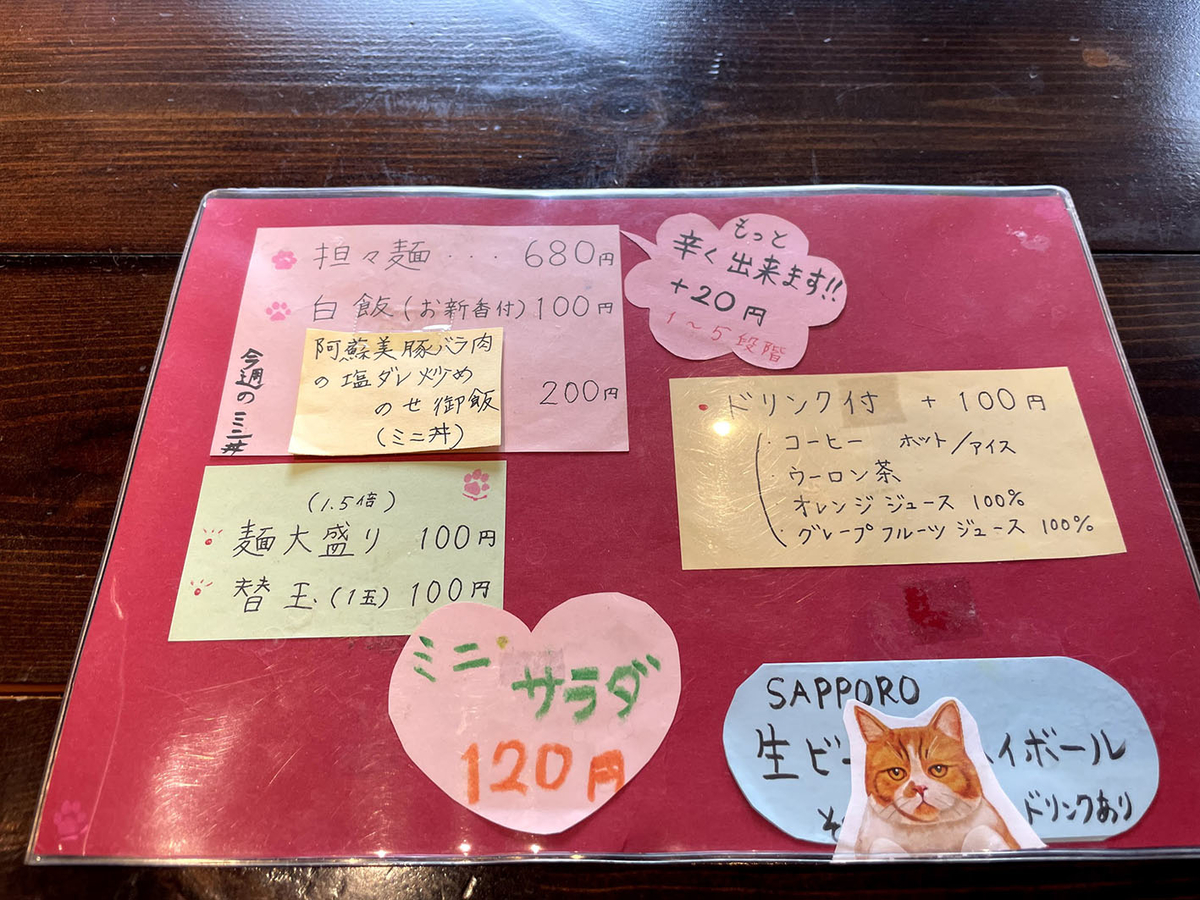 担々麺 ・・・ 680円
白飯(お新香付)100円
今週のミニ丼
阿蘇美豚バラ肉
の塩ダレ炒め
のせ御飯
(ミニ丼)
200円
もっと
辛く出来ます!!
+20円
1~5段階
・ドリンク付 +100円
・コーヒー ホット/アイス
・ウーロン茶
・オレンジジュース 100%
・グレープフルーツジュース 100%
(1.5倍)
麺大盛り 100円
替玉.(1玉)100円
ミニ・
サラダ
120円
SAPPORO
生ビ イボール
ドリンクあり